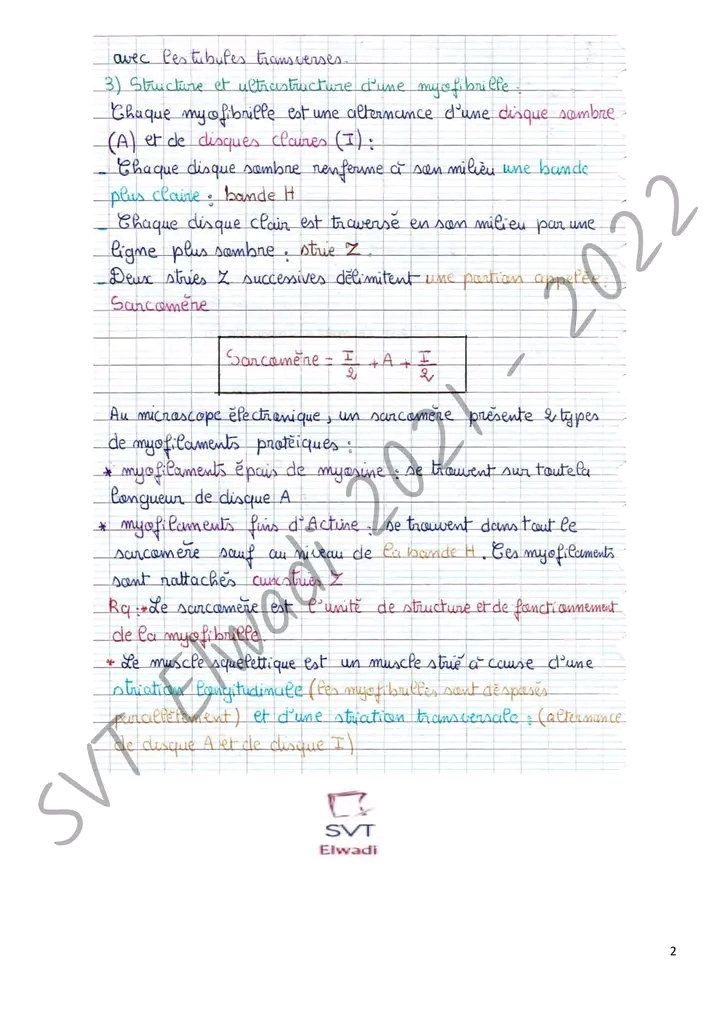 avec les tubules transverses.
3) Structure et ultrastructure d'une myofibrille :
Chaque myofibrille est une alternance d'une disque sombre
(A) et de disques claires (I) :
- Chaque disque sombre renferme à son milieu une bande
plus claire : bande H
- Chaque disque clair est traversé en son milieu par une
ligne plus sombre : strie Z.
- Deux stries Z successives délimitent une portion appelée :
Sarcomère
Sarcomère = I/2 + A + I/2
Au microscope électronique, un sarcomère présente 2 types
de myofilaments protéiques :
* myofilaments épais de myosine : se trouvent sur toute la
longueur de disque A
* myofilaments fins d'Actine : se trouvent dans tout le
sarcomère sauf au niveau de la bande H. Ces myofilaments
sont rattachés aux stries Z
Rq : * Le sarcomère est l'unité de structure et de fonctionnement
de la myofibrille.
* Le muscle squelettique est un muscle strié à cause d'une
striation longitudinale (les myofibrilles sont disposés
parallèlement) et d'une striation transversale : (alternance
de disque A et de disque I)
SVT Elwadi 2021 - 2022
SVT
Elwadi
2